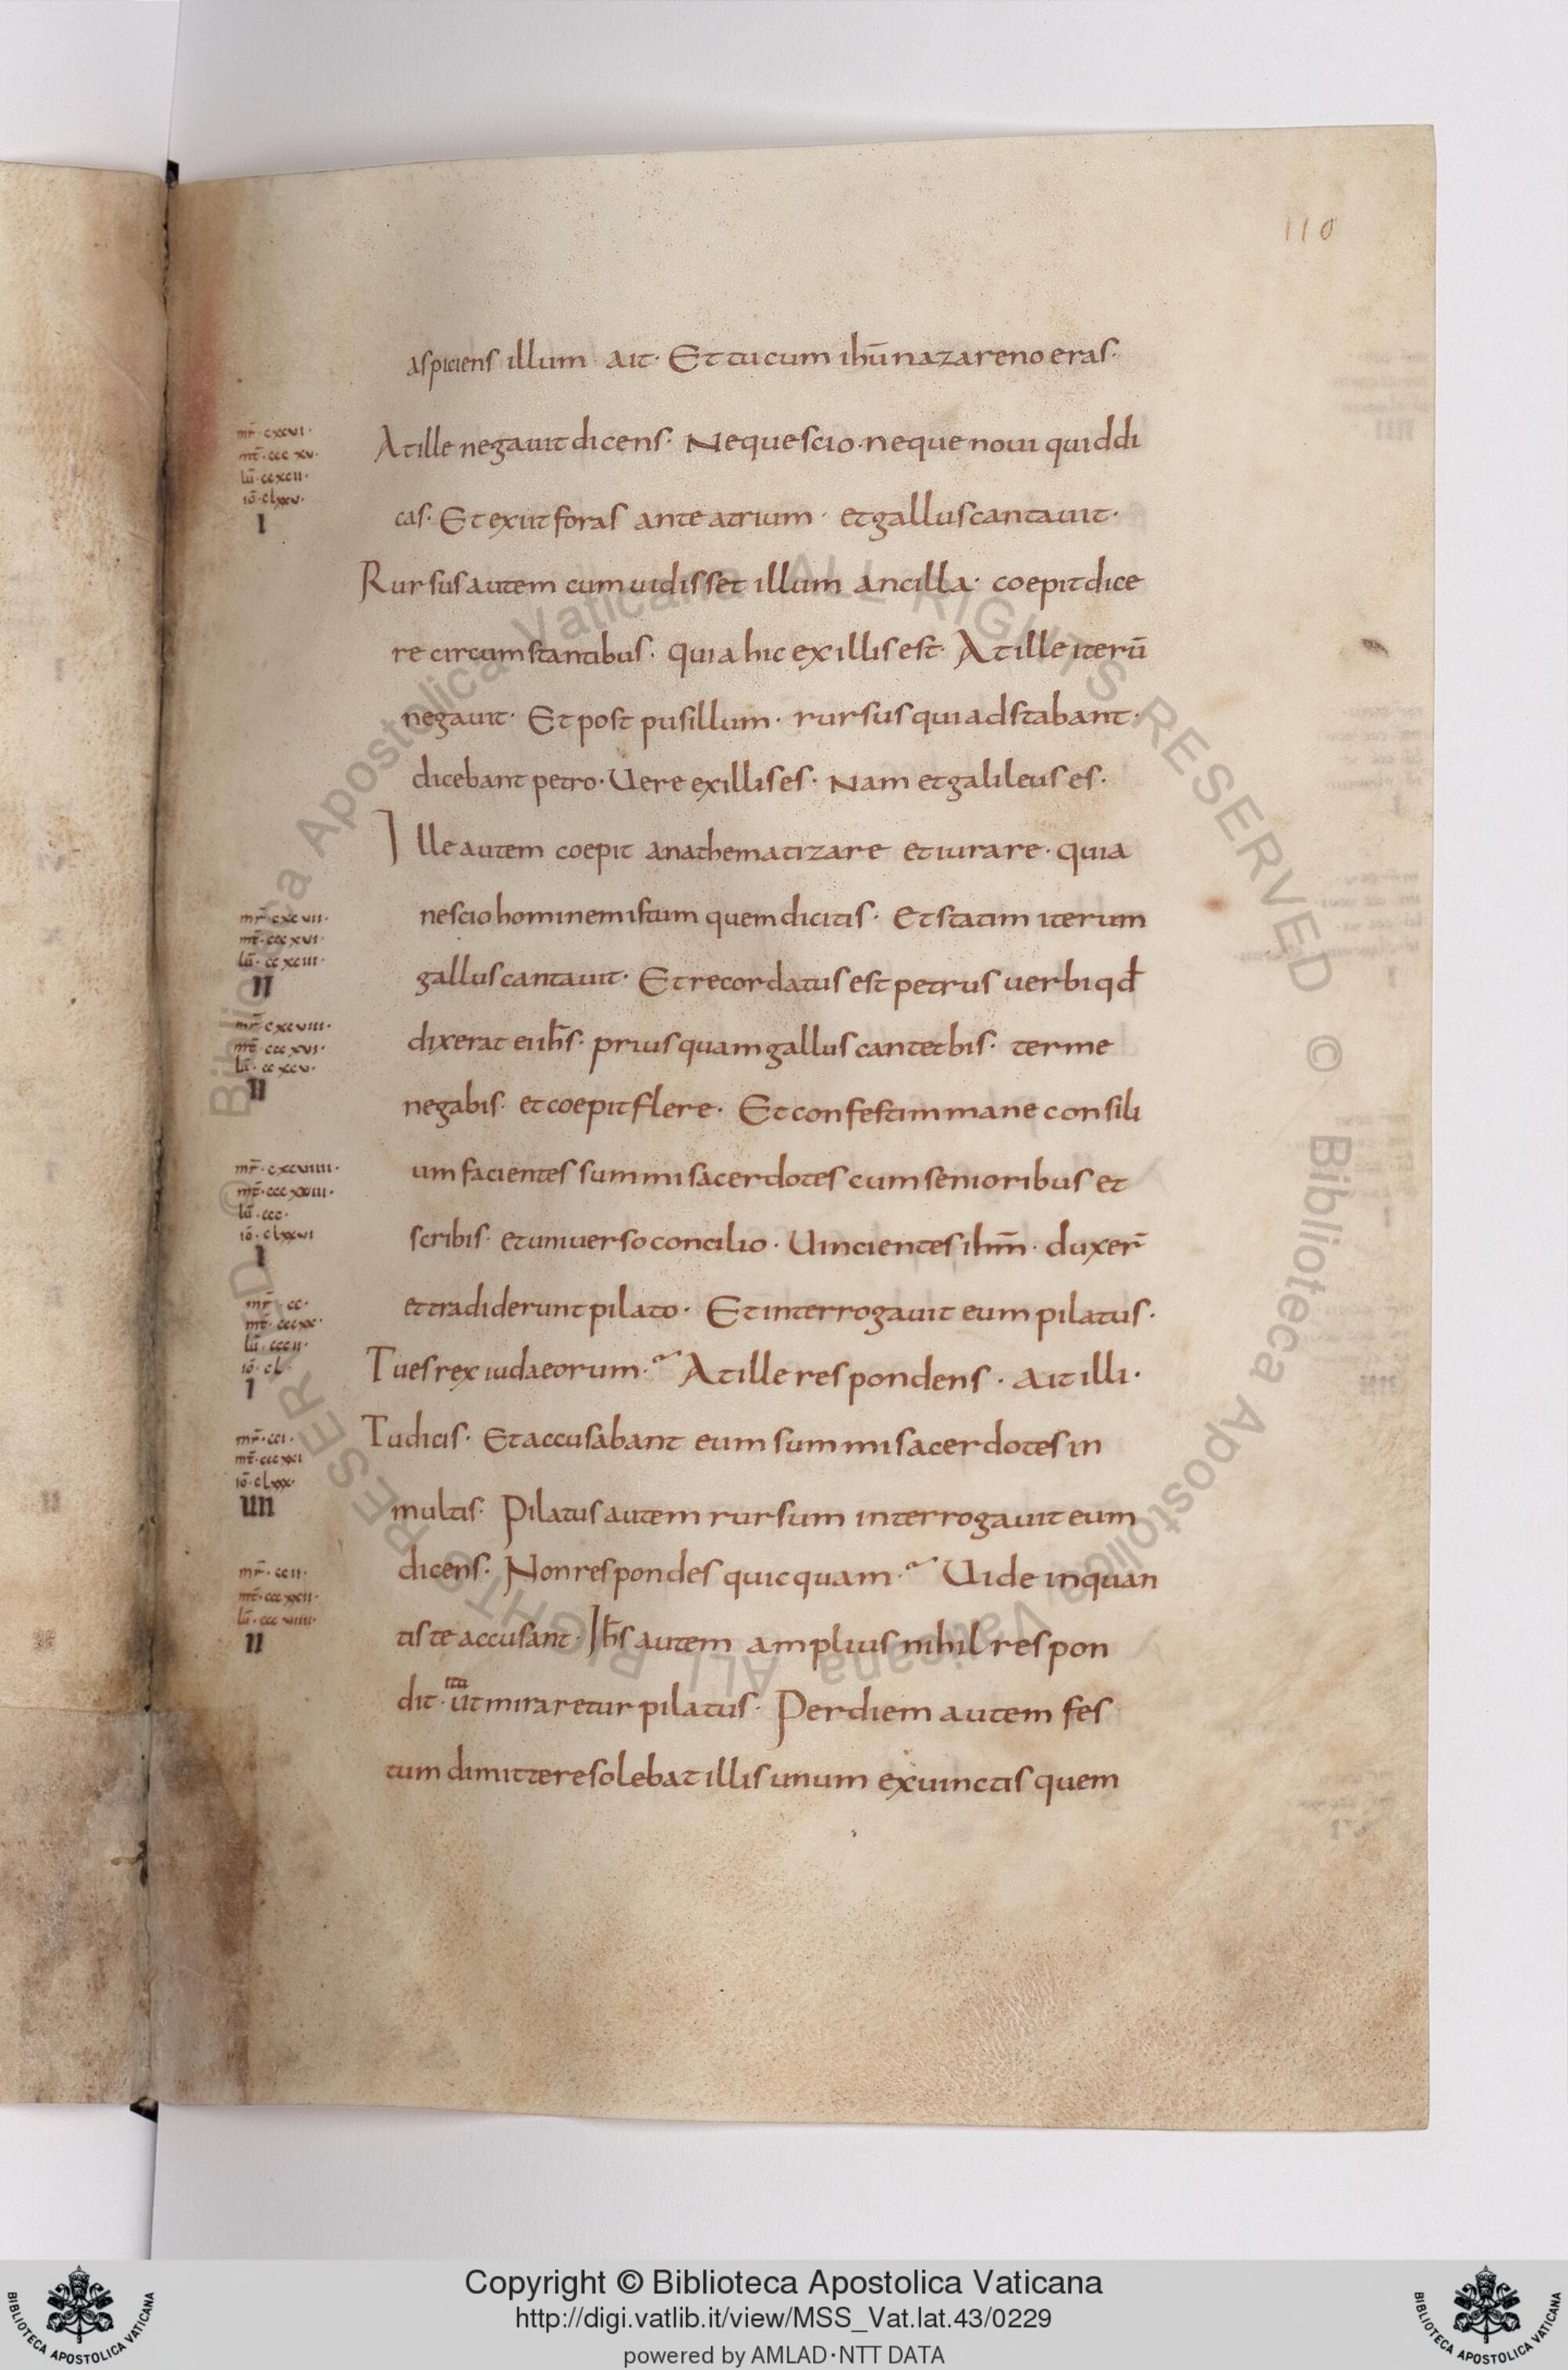 110
aspiciens illum ait· Et tu cum ihū nazareno eras·
mr̄·cxcvi·
mt̄·cccxv·
lū·ccxcii·
iō·clxxv·
I
At ille negauit dicens· Neque scio·neque noui quid di
cas· Et exiit foras ante atrium· et gallus cantauit·
Rursus autem cum uidisset illum ancilla· coepit dice
re circumstantibus· quia hic ex illis est· At ille iterū
negauit· Et post pusillum· rursus qui adstabant·
dicebant petro· Uere ex illis es· Nam et galileus es·
Ille autem coepit anathematizare et iurare· quia
mr̄·cxcvii·
mt̄·cccxvi·
lū·ccxciii·
II
nescio hominem istum quem dicitis· Et statim iterum
gallus cantauit· Et recordatus est petrus uerbi qđ
mr̄·cxcviii·
mt̄·cccxvi·
lū·ccxcv·
II
dixerat ei ih̄s· prius quam gallus cantet bis· ter me
negabis· et coepit flere· Et confestim mane consili
mr̄·cxcviiii·
mt̄·cccxviii·
lū·ccc·
iō·clxxvi
I
um facientes summi sacerdotes cum senioribus et
scribis· et uniuerso concilio· Uincientes ihm̄· duxer̄
mr̄·cc·
mt̄·cccxx·
lū·cccii·
iō·cl·
I
et tradiderunt pilato· Et interrogauit eum pilatus·
Tu es rex iudaeorum·? At ille respondens· ait illi·
mr̄·cci·
mt̄·cccxxi
iō·clxxx·
IIII
Tu dicis· Et accusabant eum summi sacerdotes in
multis· Pilatus autem rursum interrogauit eum
mr̄·ccii·
mt̄·cccxxii·
lū·cccviiii·
II
dicens· Non respondes quicquam·? Uide in quan
tis te accusant· Ih̄s autem amplius nihil respon
dit· ita ut miraretur pilatus· Per diem autem fes
tum dimittere solebat illis unum ex uinctis quem
Copyright © Biblioteca Apostolica Vaticana
http://digi.vatlib.it/view/MSS_Vat.lat.43/0229
powered by AMLAD·NTT DATA
BIBLIOTECA APOSTOLICA VATICANA
BIBLIOTECA APOSTOLICA VATICANA
© Biblioteca Apostolica Vaticana ALL RIGHTS RESERVED
© Biblioteca Apostolica Vaticana ALL RIGHTS RESERVED